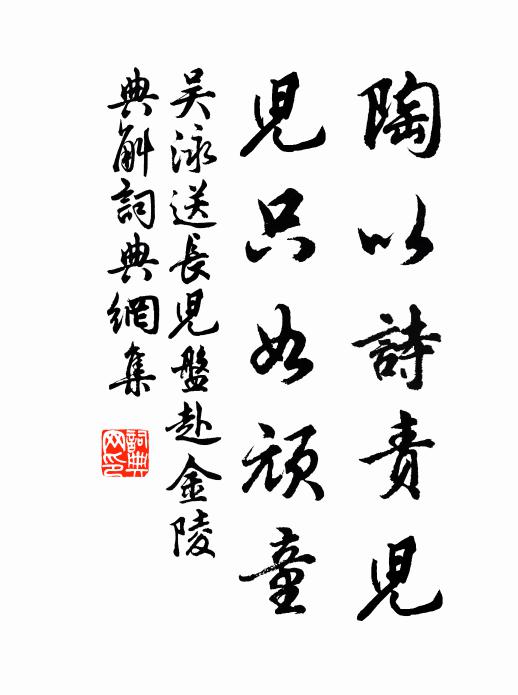 陶以詩責兒
兒只如頑童
吴泳送長兒盤赴金陵
典斛詞典網集
詞典网印